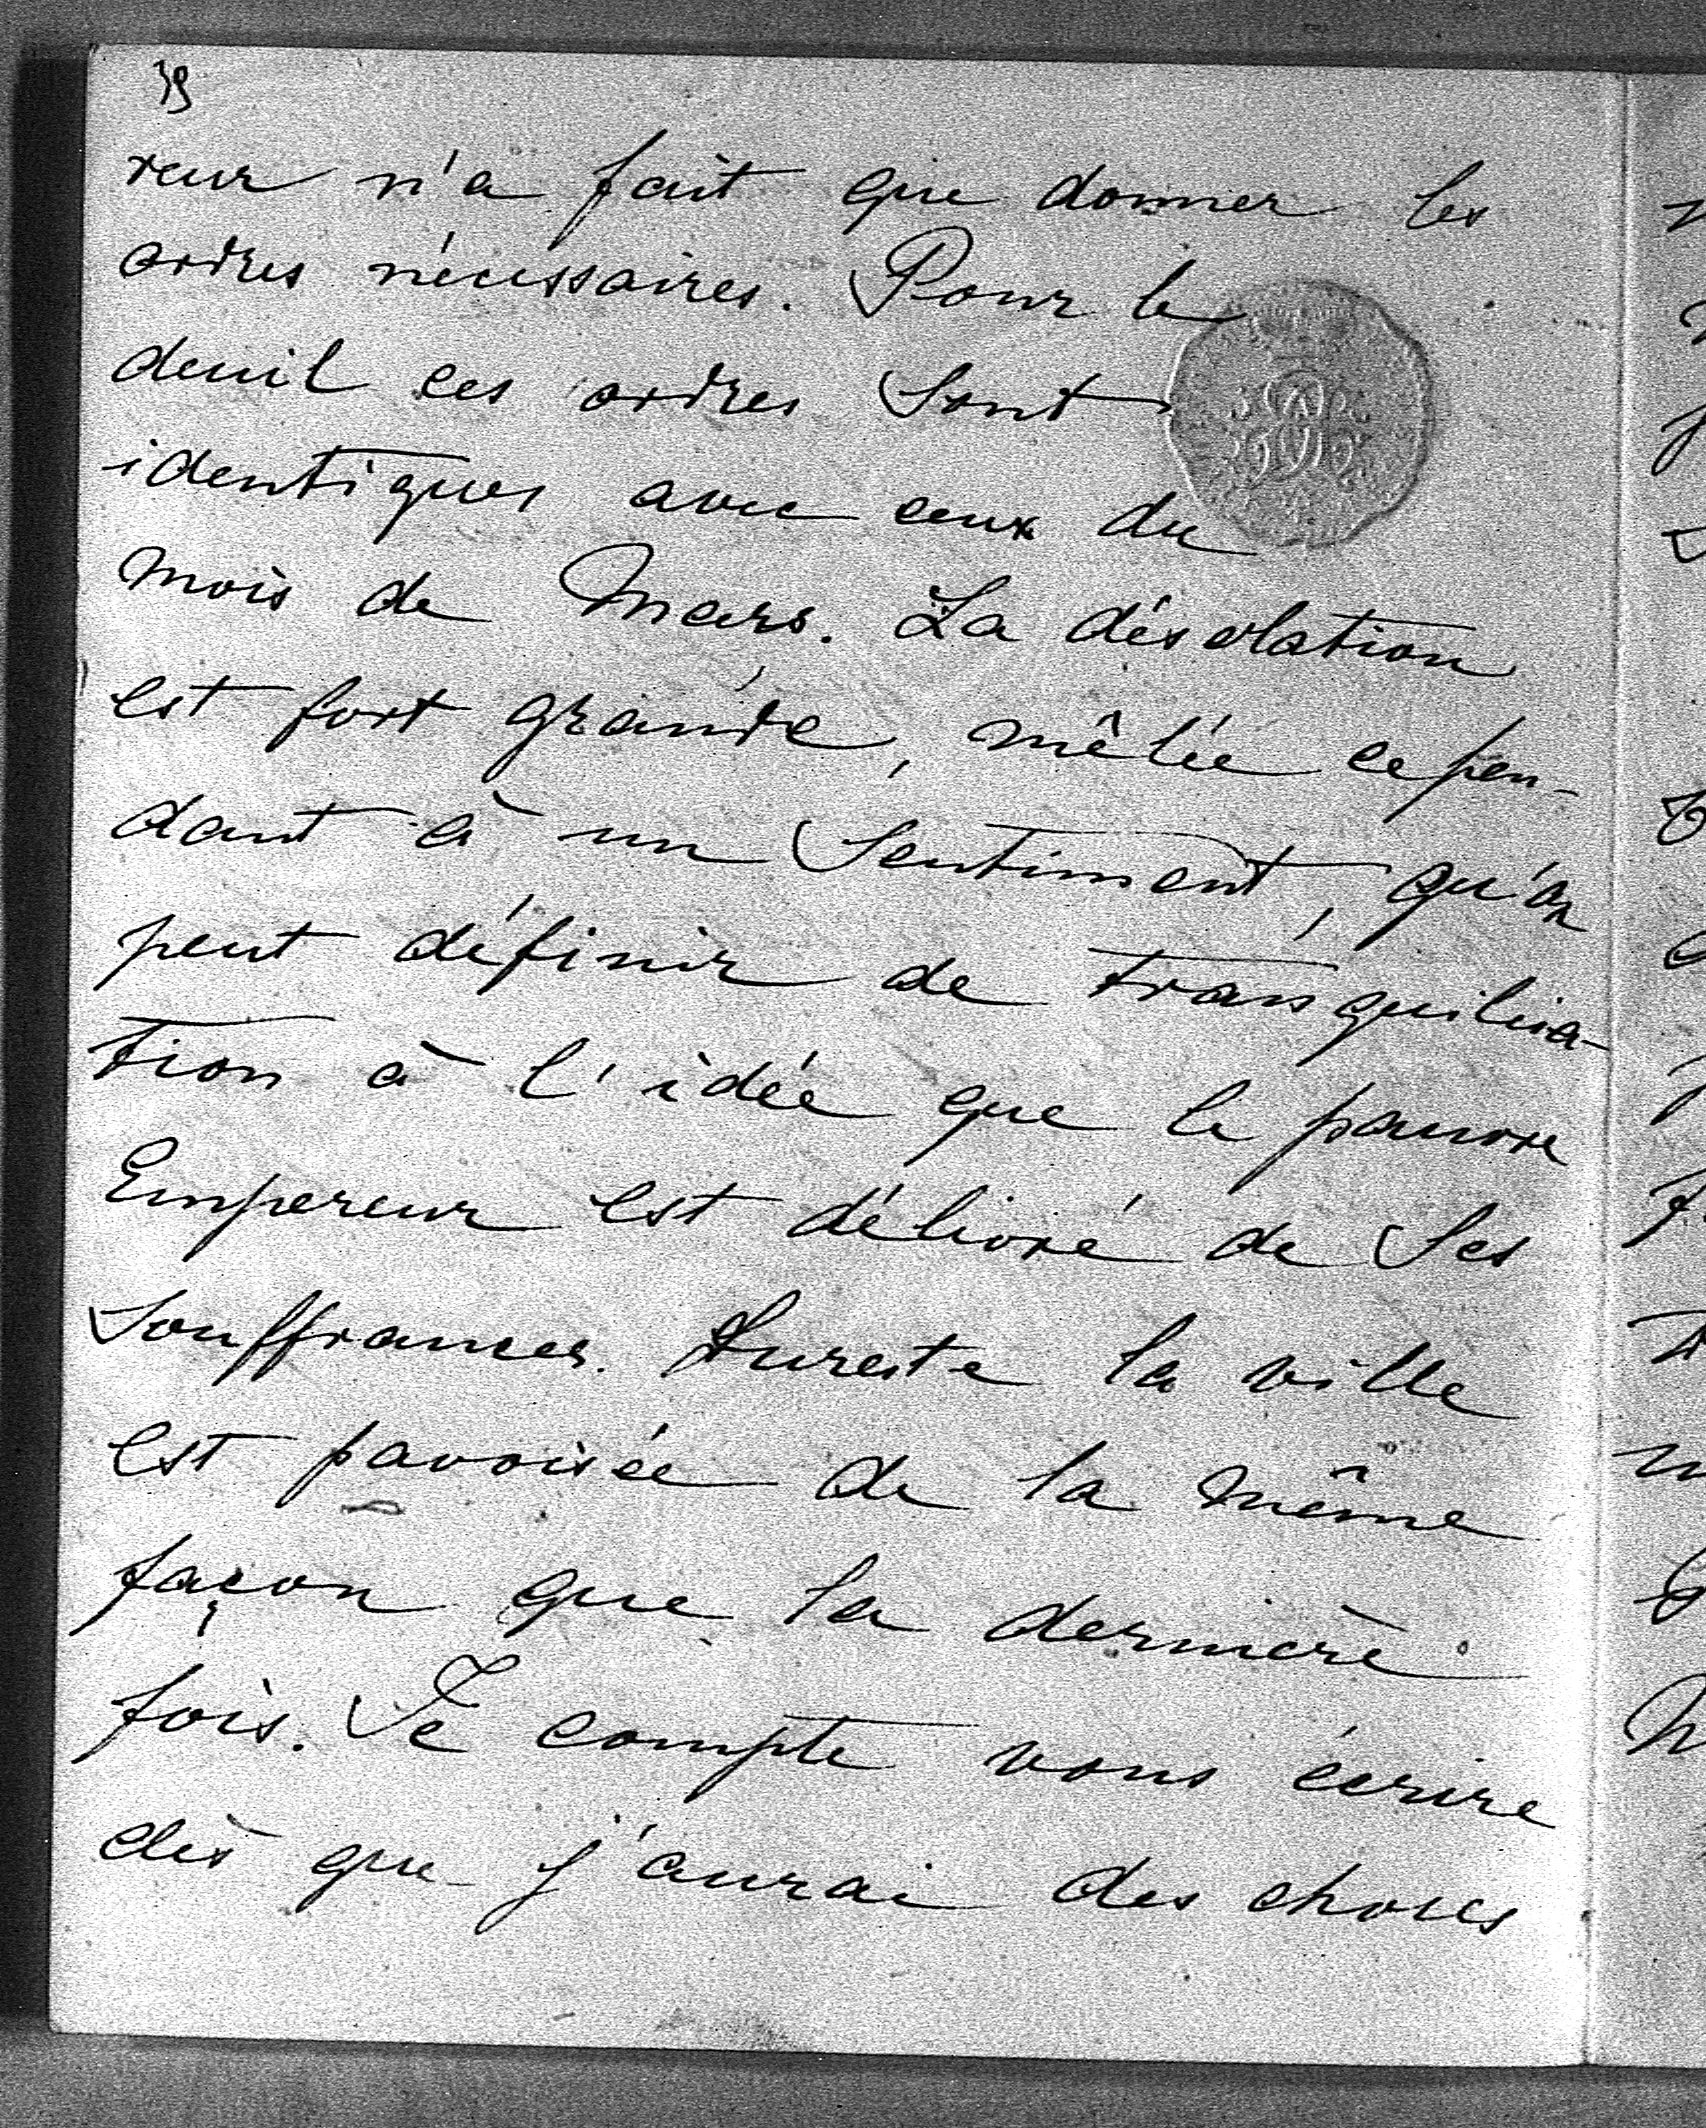 39
reur n'a fait que donner les
ordres nécessaires. Pour le
deuil ces ordres sont
identiques avec ceux du
mois de Mars. La désolation
est fort grande, mêlée cepen-
dant à un sentiment, qu'on
peut définir de tranquilisa-
tion à l'idée que le pauvre
Empereur est délivré de ses
souffrances. Aureste la ville
est pavoisée de la même
façon que la dernière
fois. Je compte vous écrire
dès que j'aurai des choses